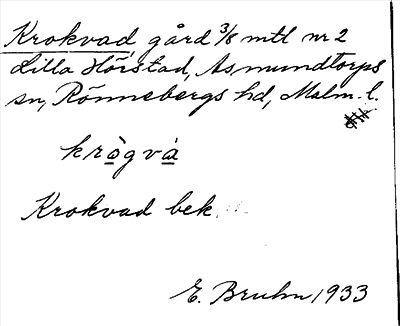 Krokvad, gård 3/8 mtl nr 2
Lilla Hörstad, Asmundtorps
sn, Rönnebergs hd, Malm. l.
krògvá
Krokvad bek.
E. Bruhn 1933